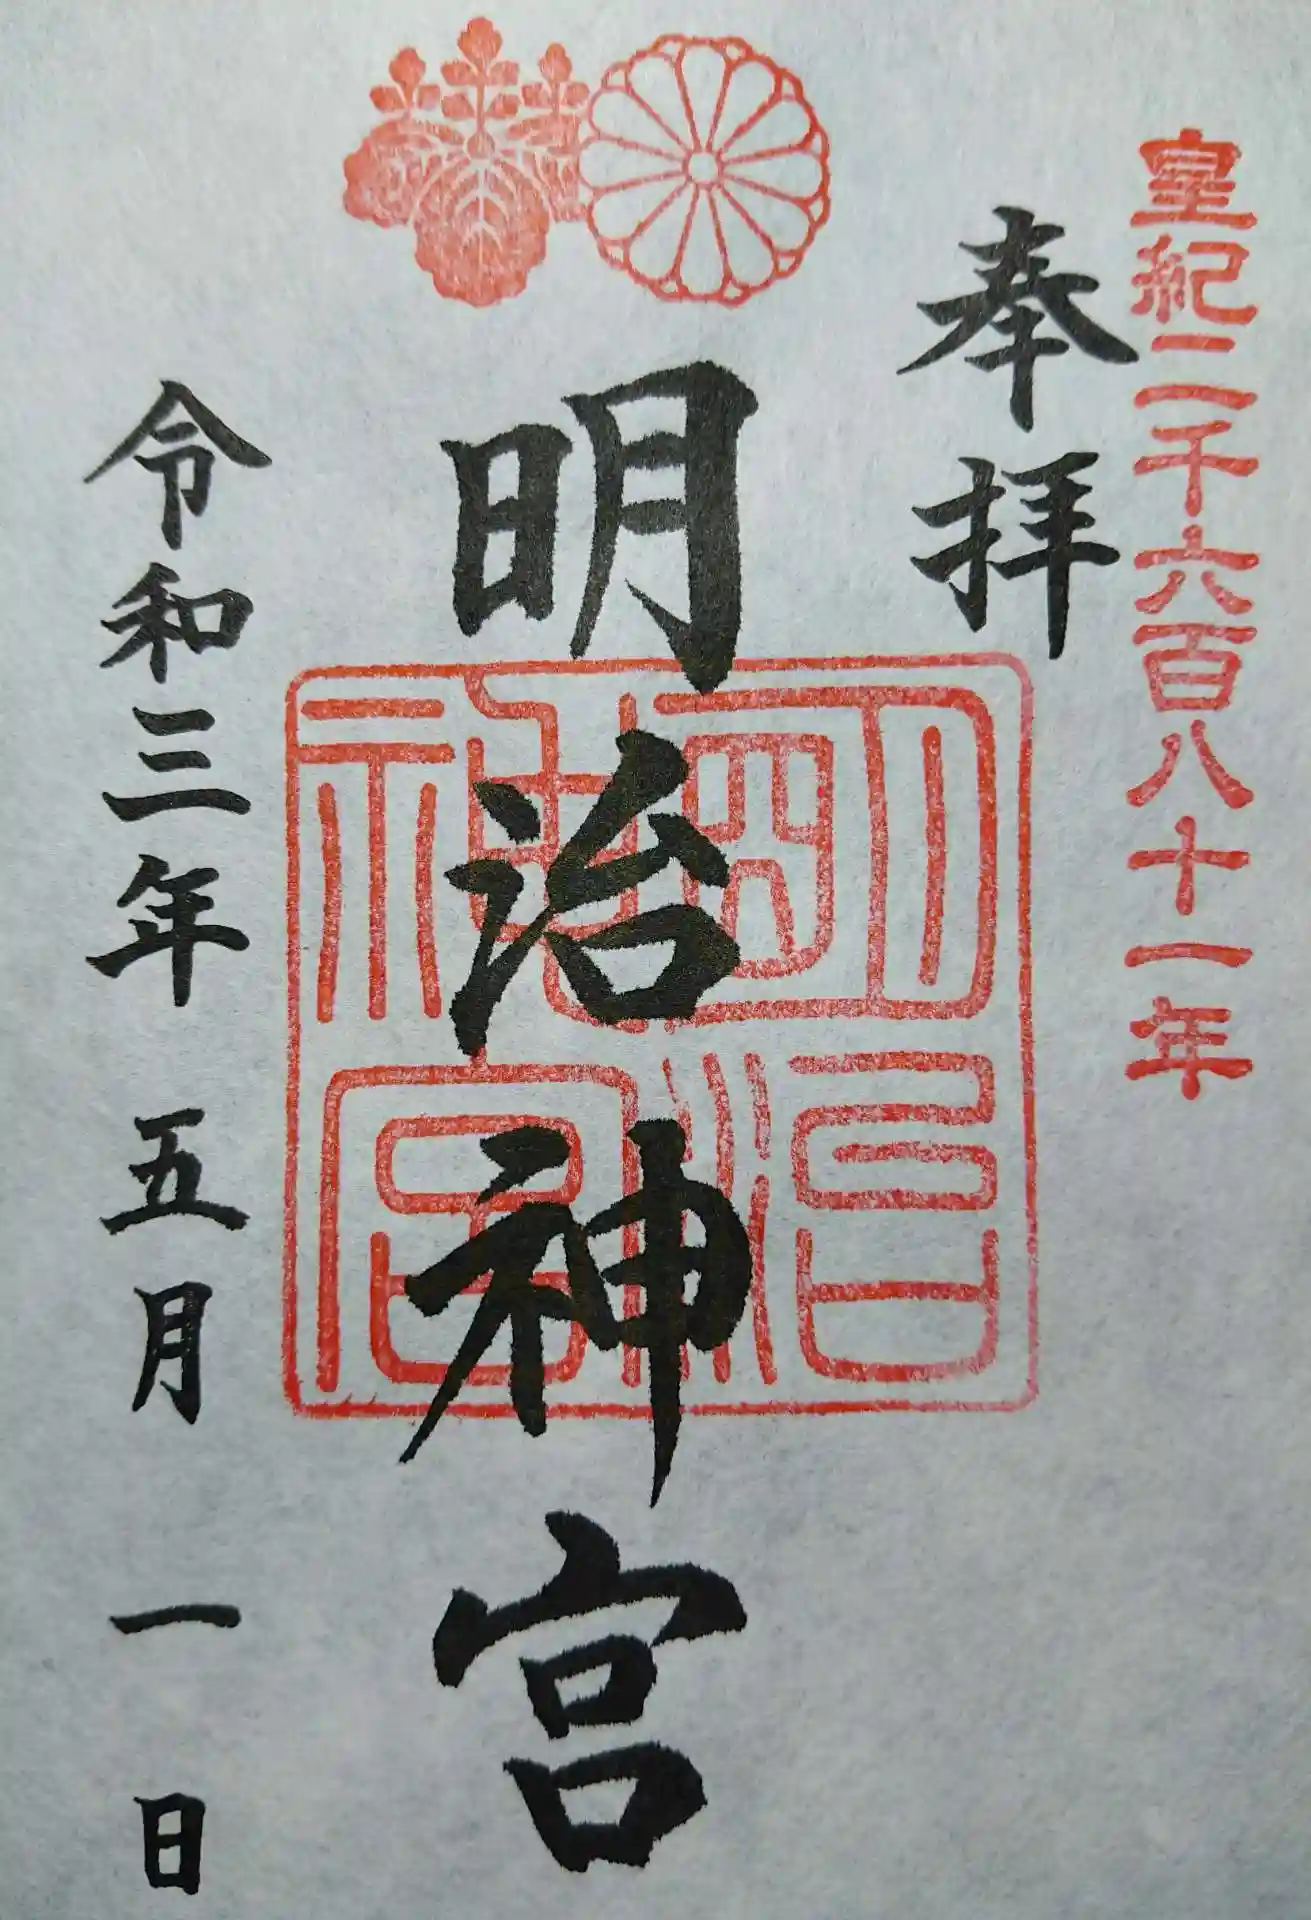 皇紀二千六百八十一年
奉拝
明治神宮
明治神宮
令和三年 五月 一日